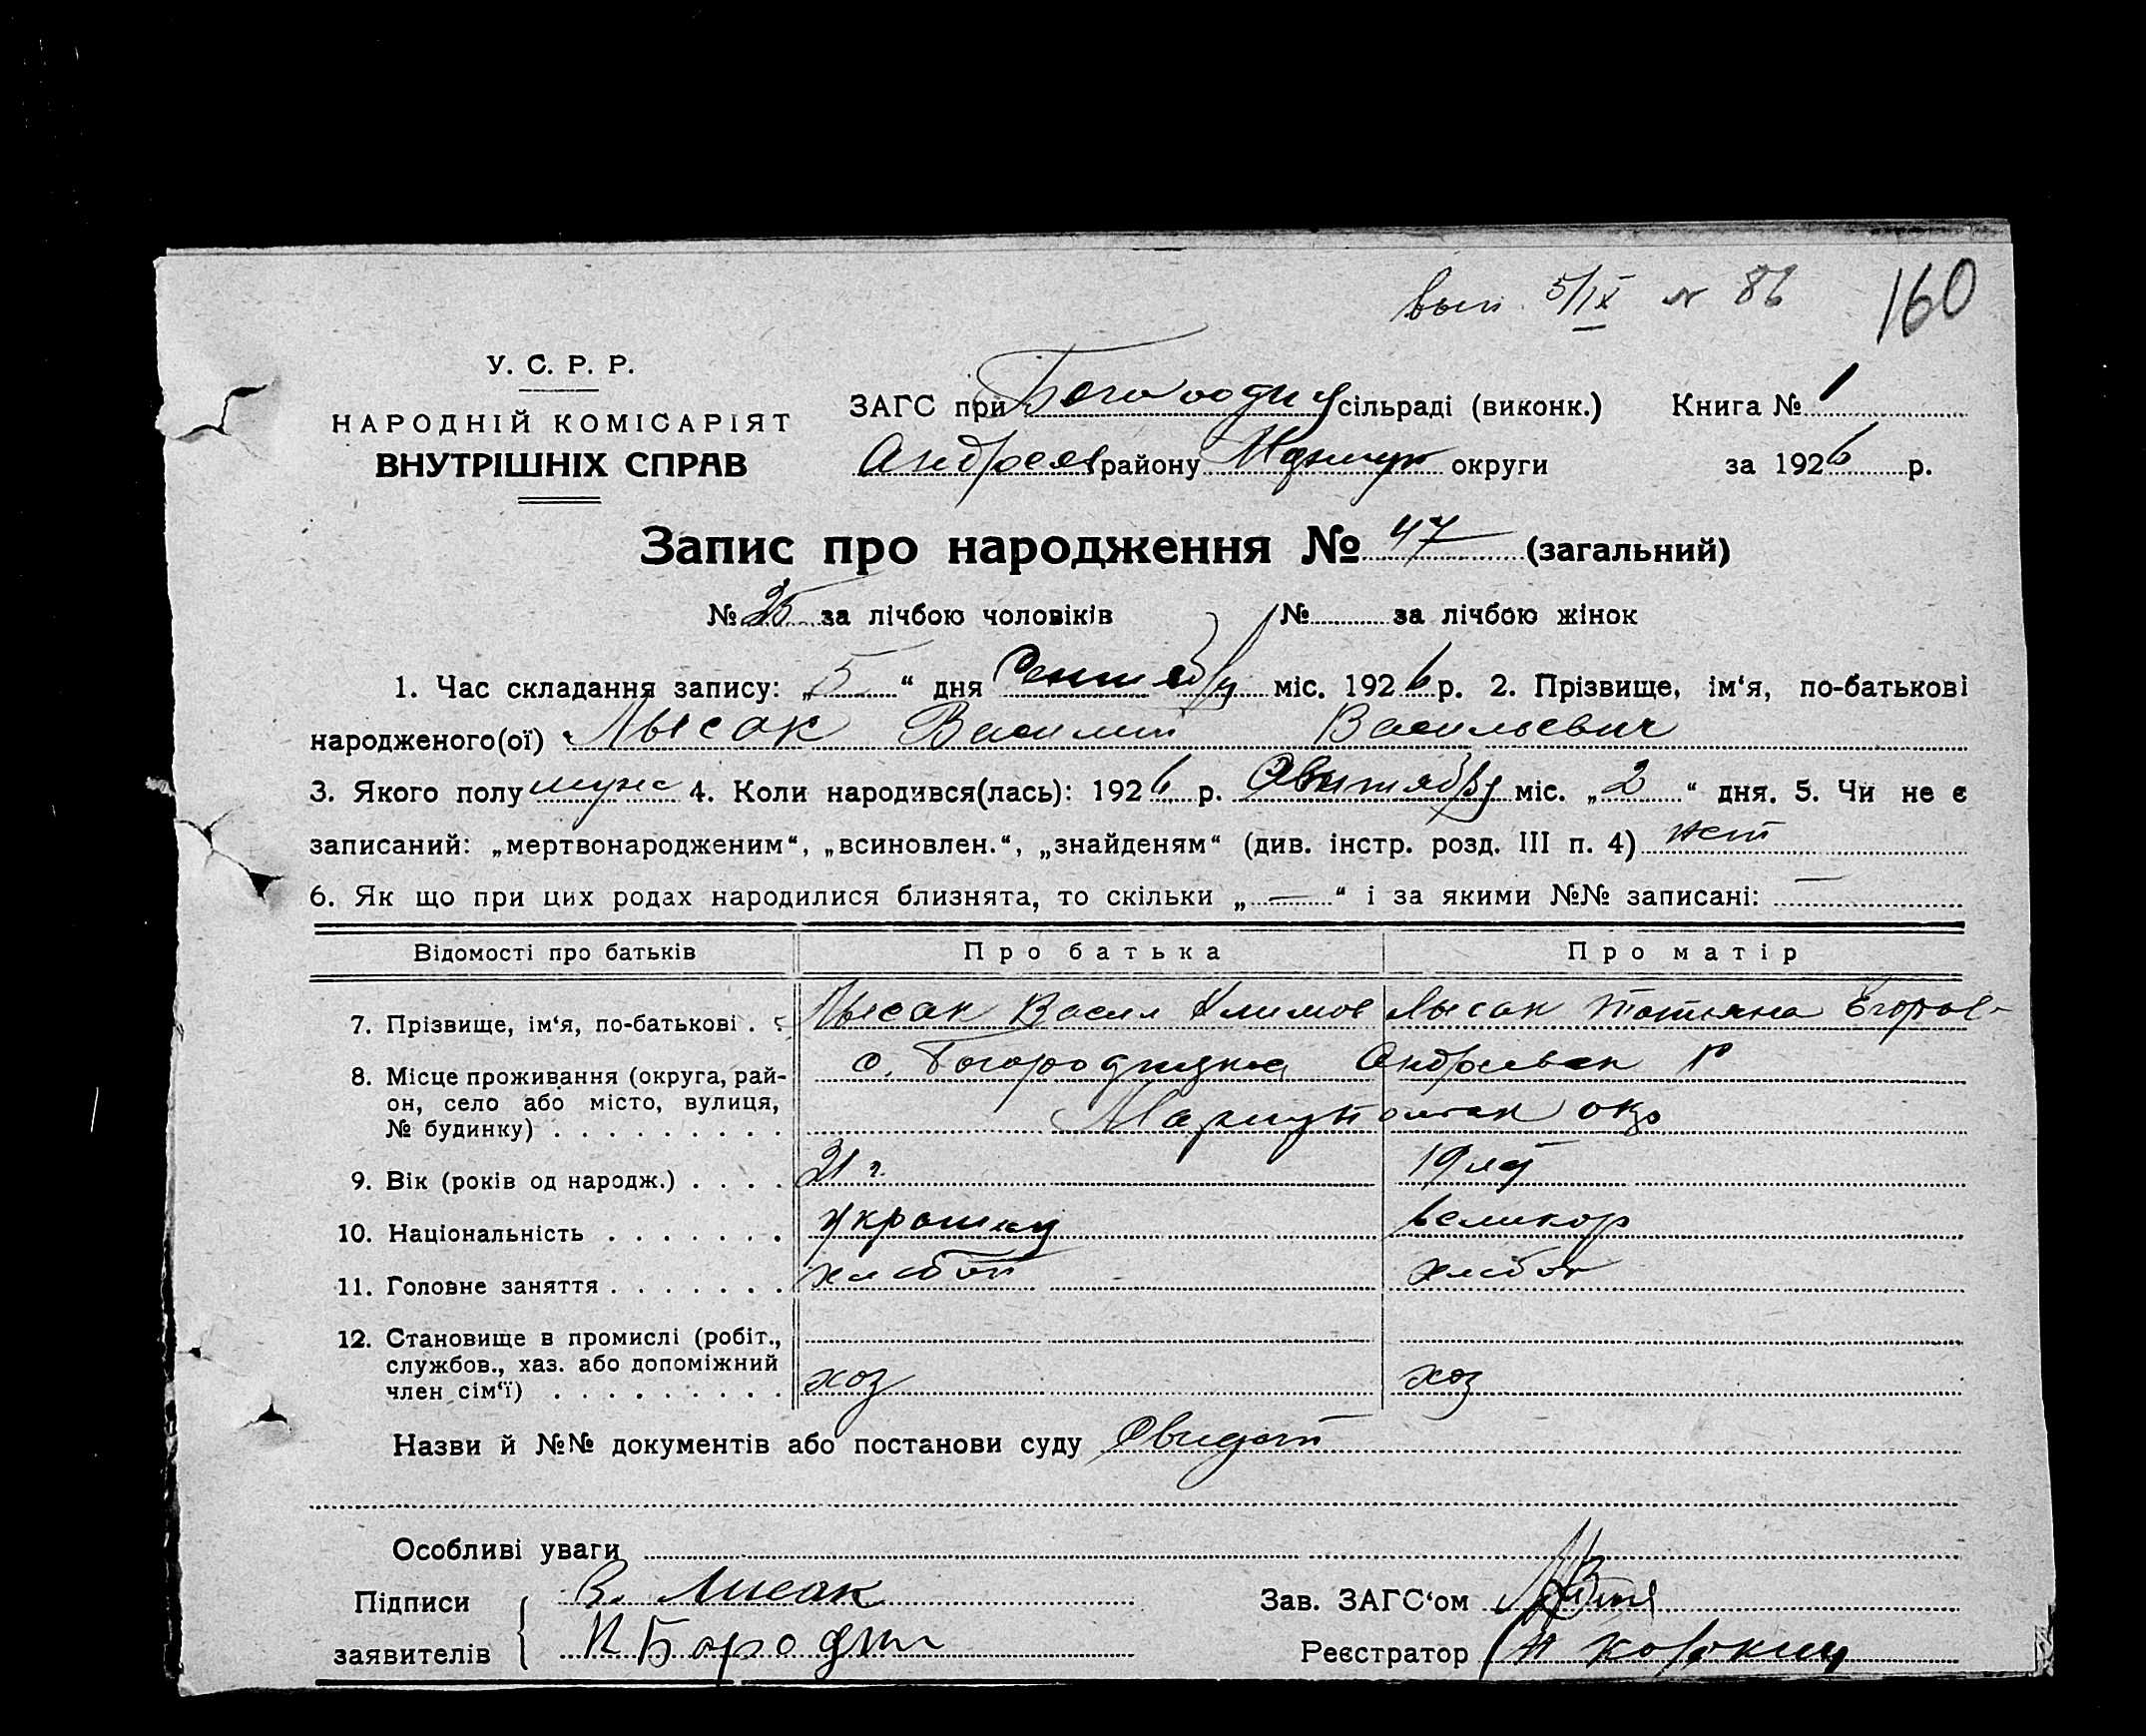 вып. 5/IX № 86 160
У. С. Р. Р.
НАРОДНІЙ КОМІСАРІЯТ
ВНУТРІШНІХ СПРАВ
ЗАГС при сільраді (виконк.) Книга № 1
Андреев району округи за 1926 р.
Запис про народження № 47 (загальний)
№ 25 за лічбою чоловіків № за лічбою жінок
1. Час складання запису: „5“ дня Сентября міс. 1926 р. 2. Прізвище, ім‘я, по-батькові
народженого(ої) Лысак Василий Васильевич
3. Якого полу муж 4. Коли народився(лась): 1926 р. Сентября міс. „2“ дня. 5. Чи не є
записаний: „мертвонародженим“, „всиновлен.“, „знайденям“ (див. інстр. розд. III п. 4) нет
6. Як що при цих родах народилися близнята, то скільки „—“ і за якими №№ записані: —
Відомості про батьків Про батька Про матір
7. Прізвище, ім‘я, по-батькові . . Лысак Васил Климов Лысак Татьяна Егоров-
8. Місце проживання (округа, рай- с. Богородицка Андреевск Р
он, село або місто, вулиця,
№ будинку) . . . . . . . . . Мариупольск окр
9. Вік (років од народж.) . . . . 21 г. 19 лет
10. Національність . . . . . . . украинец великор
11. Головне заняття . . . . . . . хлебоп хлебоп
12. Становище в промислі (робіт.,
службов., хаз. або допоміжний
член сім‘ї) . . . . . . . . . хоз хоз
Назви й №№ документів або постанови суду Свидет
Особливі уваги
Підписи В. Лисак Зав. ЗАГС‘ом
заявителів И Бородин Реєстратор